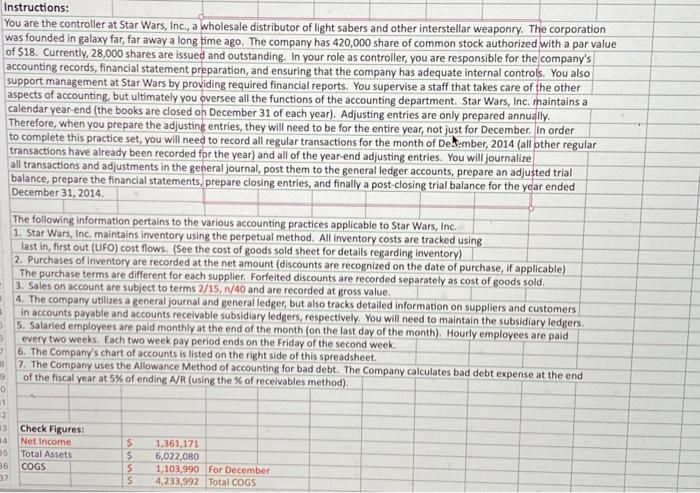 Instructions:
You are the controller at Star Wars, Inc., a wholesale distributor of light sabers and other interstellar weaponry. The corporation
was founded in galaxy far, far away a long time ago. The company has 420,000 share of common stock authorized with a par value
of $18. Currently, 28,000 shares are issued and outstanding. In your role as controller, you are responsible for the company's
accounting records, financial statement preparation, and ensuring that the company has adequate internal controls. You also
support management at Star Wars by providing required financial reports. You supervise a staff that takes care of the other
aspects of accounting, but ultimately you oversee all the functions of the accounting department. Star Wars, Inc. maintains a
calendar year-end (the books are closed on December 31 of each year). Adjusting entries are only prepared annually.
Therefore, when you prepare the adjusting entries, they will need to be for the entire year, not just for December. In order
to complete this practice set, you will need to record all regular transactions for the month of December, 2014 (all other regular
transactions have already been recorded for the year) and all of the year-end adjusting entries. You will journalize
all transactions and adjustments in the general journal, post them to the general ledger accounts, prepare an adjusted trial
balance, prepare the financial statements, prepare closing entries, and finally a post-closing trial balance for the year ended
December 31, 2014.
The following information pertains to the various accounting practices applicable to Star Wars, Inc.
1. Star Wars, Inc. maintains inventory using the perpetual method. All inventory costs are tracked using
last in, first out (LIFO) cost flows. (See the cost of goods sold sheet for details regarding inventory)
2. Purchases of inventory are recorded at the net amount (discounts are recognized on the date of purchase, if applicable)
The purchase terms are different for each supplier. Forfeited discounts are recorded separately as cost of goods sold.
3. Sales on account are subject to terms 2/15, n/40 and are recorded at gross value.
4. The company utilizes a general journal and general ledger, but also tracks detailed information on suppliers and customers
in accounts payable and accounts receivable subsidiary ledgers, respectively. You will need to maintain the subsidiary ledgers.
5. Salaried employees are paid monthly at the end of the month (on the last day of the month). Hourly employees are paid
every two weeks. Each two week pay period ends on the Friday of the second week.
6. The Company's chart of accounts is listed on the right side of this spreadsheet.
7. The Company uses the Allowance Method of accounting for bad debt. The Company calculates bad debt expense at the end
of the fiscal year at 5% of ending A/R (using the % of receivables method).
Check Figures:
Net Income $ 1,361,171
Total Assets $ 6,022,080
COGS $ 1,103,990 For December
$ 4,233,992 Total COGS